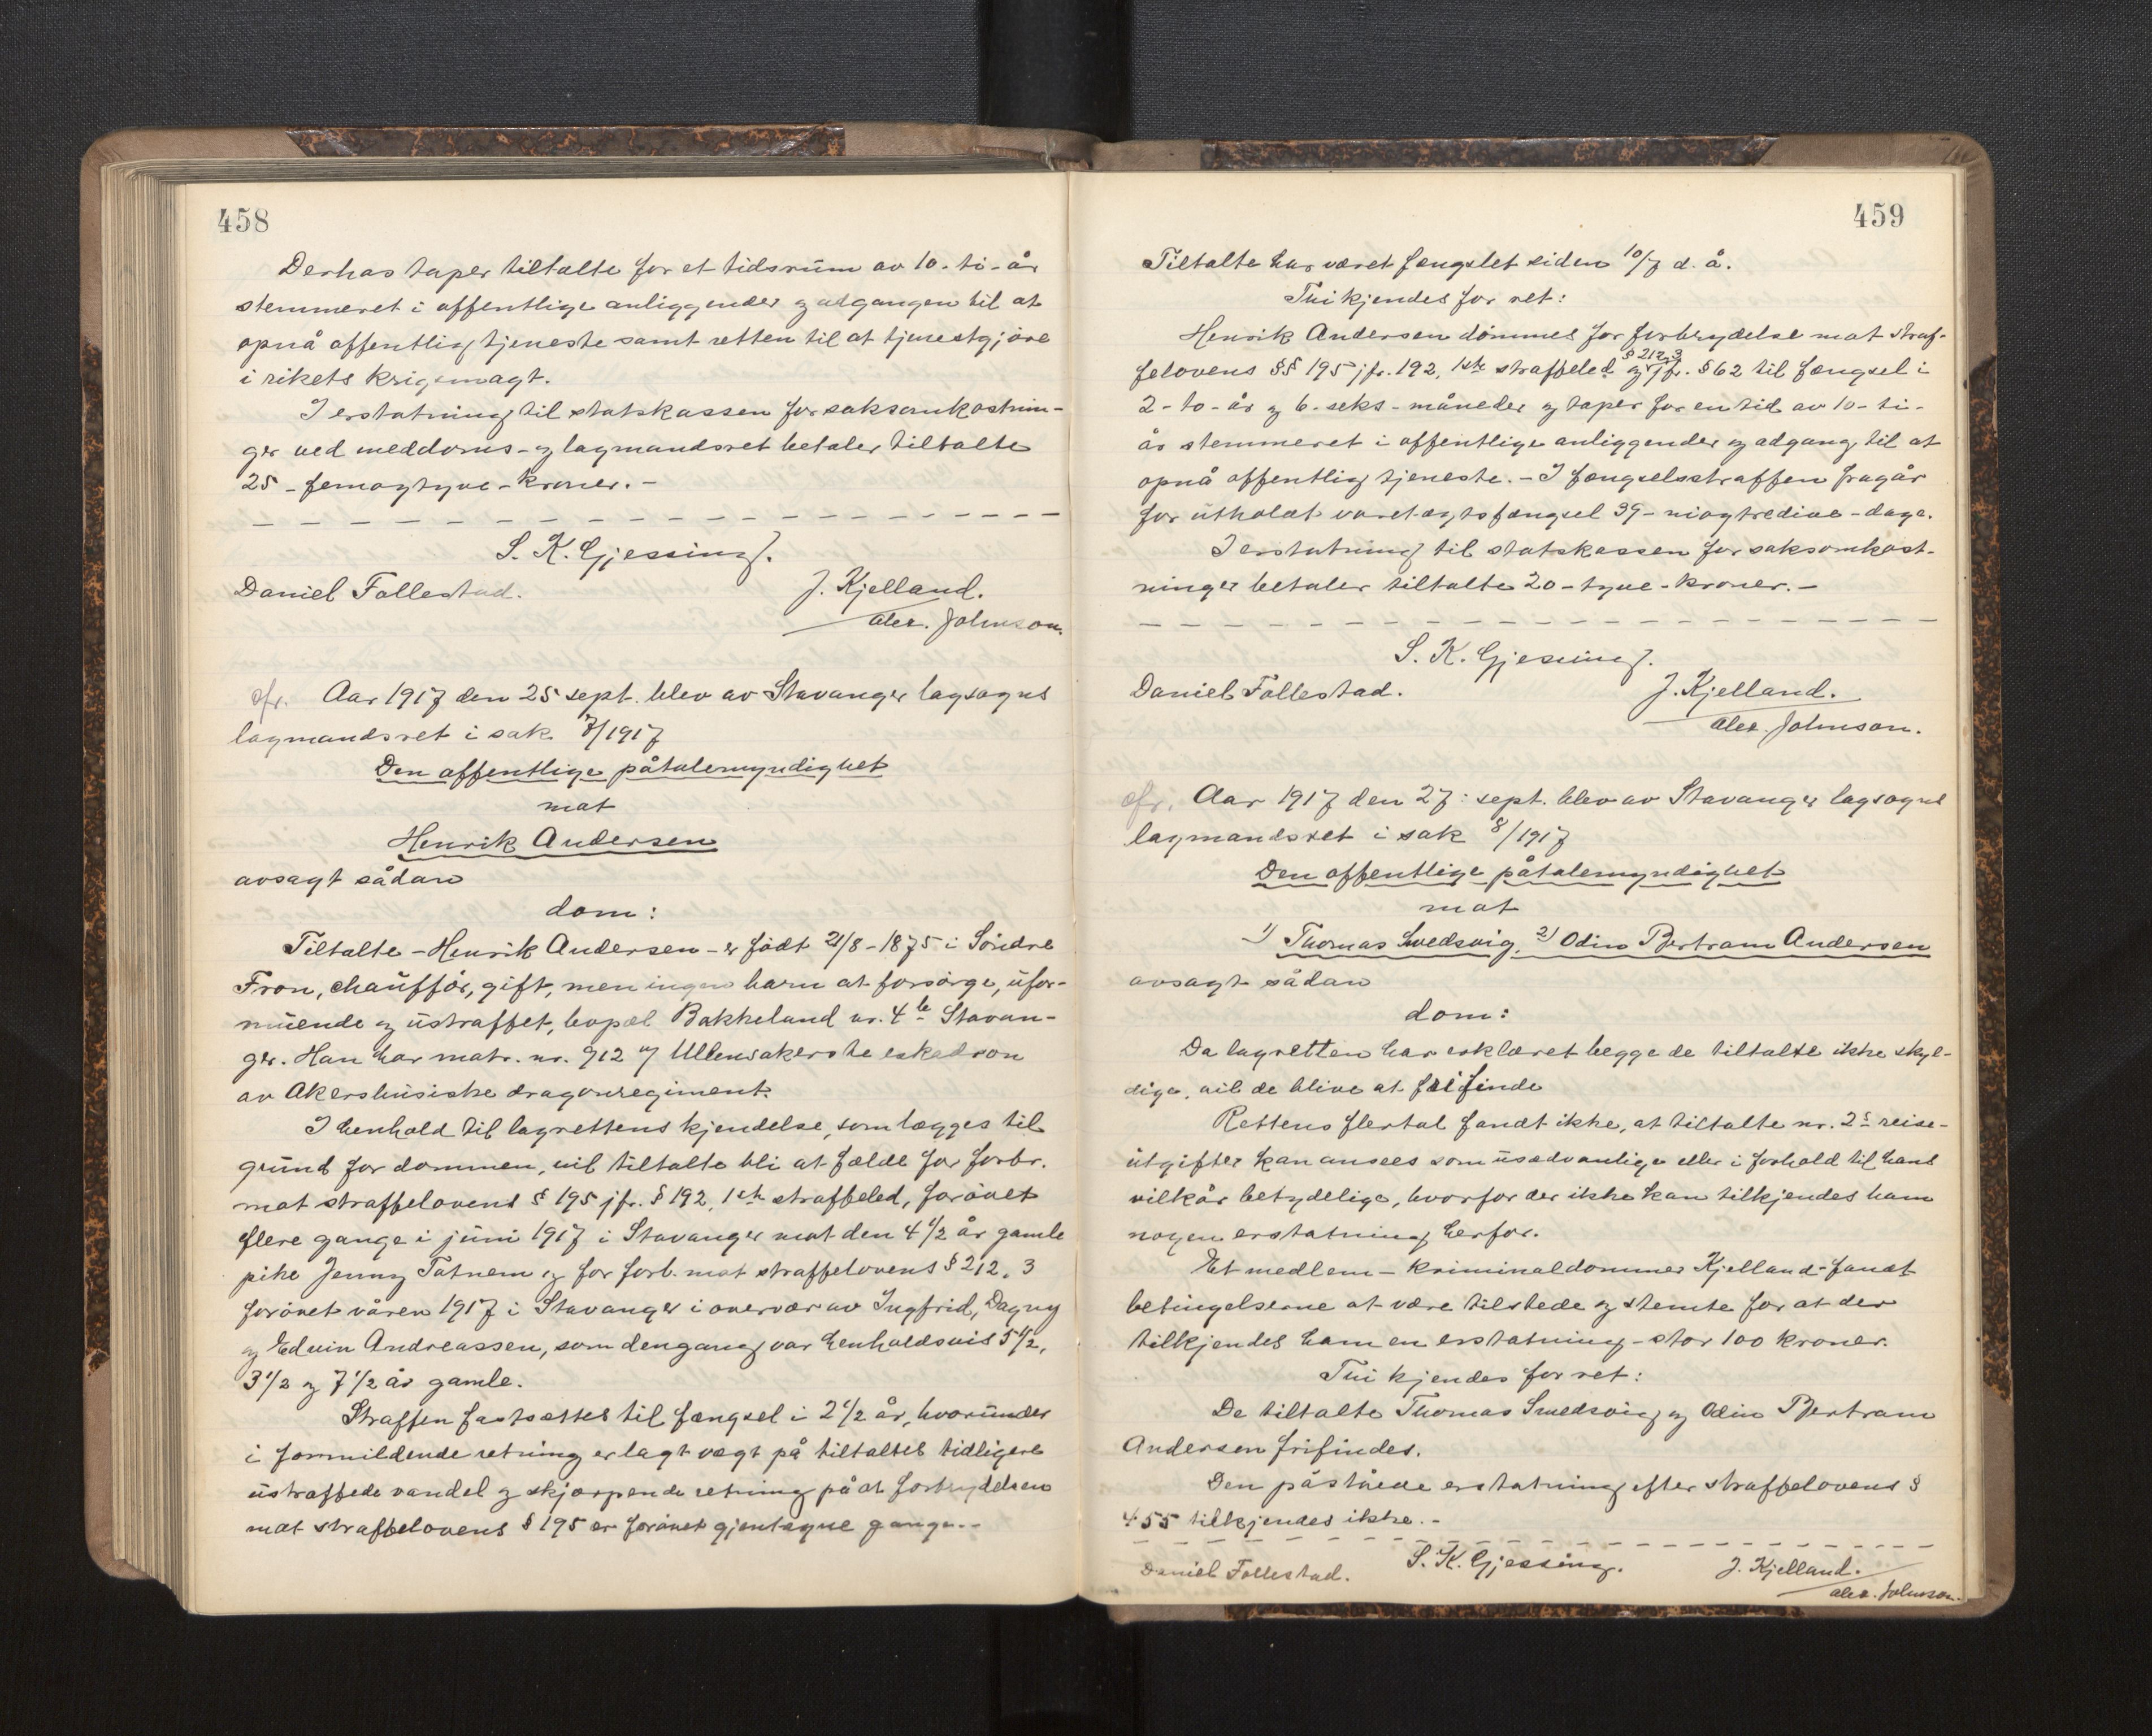 458
Derhos taper tiltalte for et tidsrum av 10-ti-år
stemmeret i offentlige anliggender og adgangen til at
opnå offentlig tjeneste samt retten til at tjenestgjøre
i rikets krigsmagt.
I erstatning til statskassen for saksomkostnin-
ger ved meddoms- og lagmandsret betaler tiltalte
25 - femogtyve - kroner. -
S. K. Gjessing.
Daniel Follestad.
J. Kjelland.
Alex. Johnson.
cfr. Aar 1917 den 25 sept. blev av Stavanger lagsogns
lagmandsret i sak 7/1917
Den offentlige påtalemyndighet
mot
Henrik Andersen
avsagt sådan
dom:
Tiltalte - Henrik Andersen - er født 21/8 - 1875 i Søndre
Fron, chauffør, gift, men ingen barn at forsørge, ufor-
muende og ustraffet, bopæl Bakkeland nr. 4 b Stavan-
ger. Han har matr. nr. 912 og Ullensakerste eskadron
av Akershusiske dragonregiment.
I henhold til lagrettens kjendelse, som lægges til
grund for dommen, vil tiltalte bli at fælde for forbr.
mot straffelovens § 195 jfr. § 192, 1ste straffeled, forøvet
flere gange i juni 1917 i Stavanger mot den 4 1/2 år gamle
pike Jenny Tatnem og for forb. mot straffelovens § 212, 3
forøvet våren 1917 i Stavanger i overvær av Ingfrid, Dagny
og Edvin Andreassen, som dengang var henholdsvis 5 1/2,
3 1/2 og 7 1/2 år gamle.
Straffen fastsættes til fængsel i 2 1/2 år, hvorunder
i formildende retning er lagt vægt på tiltaltes tidligere
ustraffede vandel og skjærpende retning på at forbrydelsen
mot straffelovens § 195 er forøvet gjentagne gange. -
459
Tiltalte har været fængslet siden 10/7 d. å.
Thi kjendes for ret:
Henrik Andersen dømmes for forbrydelse mot straf-
§ 212, 3
felovens §§ 195 jfr. 192, 1ste straffeled og jfr. § 62 til fængsel i
2 - to - år og 6 - seks - måneder og taper for en tid av 10 - ti -
år stemmeret i offentlige anliggender og adgang til at
opnå offentlig tjeneste. - I fængselsstraffen fragår
for utholdt varetægtsfængsel 39 - niogtredive - dage.
I erstatning til statskassen for saksomkost-
ninger betaler tiltalte 20 - tyve - kroner. -
S. K. Gjessing.
Daniel Follestad.
J. Kjelland.
Alex. Johnson.
cfr. Aar 1917 den 27: sept. blev av Stavanger lagsogns
lagmandsret i sak 8/1917
Den offentlige påtalemyndighet
mot
1) Thomas Svedsvig, 2) Odin Bertram Andersen
avsagt sådan
dom:
Da lagretten har erklæret begge de tiltalte ikke skyl-
dige, vil de blive at frifinde
Rettens flertal fandt ikke, at tiltalte nr. 2s reise-
utgifter kan ansees som usædvanlige eller i forhold til hans
vilkår betydelige, hvorfor der ikke kan tilkjendes ham
nogen erstatning herfor.
Et medlem - kriminaldommer Kjelland - fandt
betingelserne at være tilstede og stemte for at der
tilkjendes ham en erstatning - stor 100 kroner.
Thi kjendes for ret:
De tiltalte Thomas Svedsvig og Odin Bertram
Andersen frifindes.
Den påståede erstatning efter straffelovens §
455 tilkjendes ikke. -
S. K. Gjessing.
Daniel Follestad.
J. Kjelland.
Alex. Johnson.